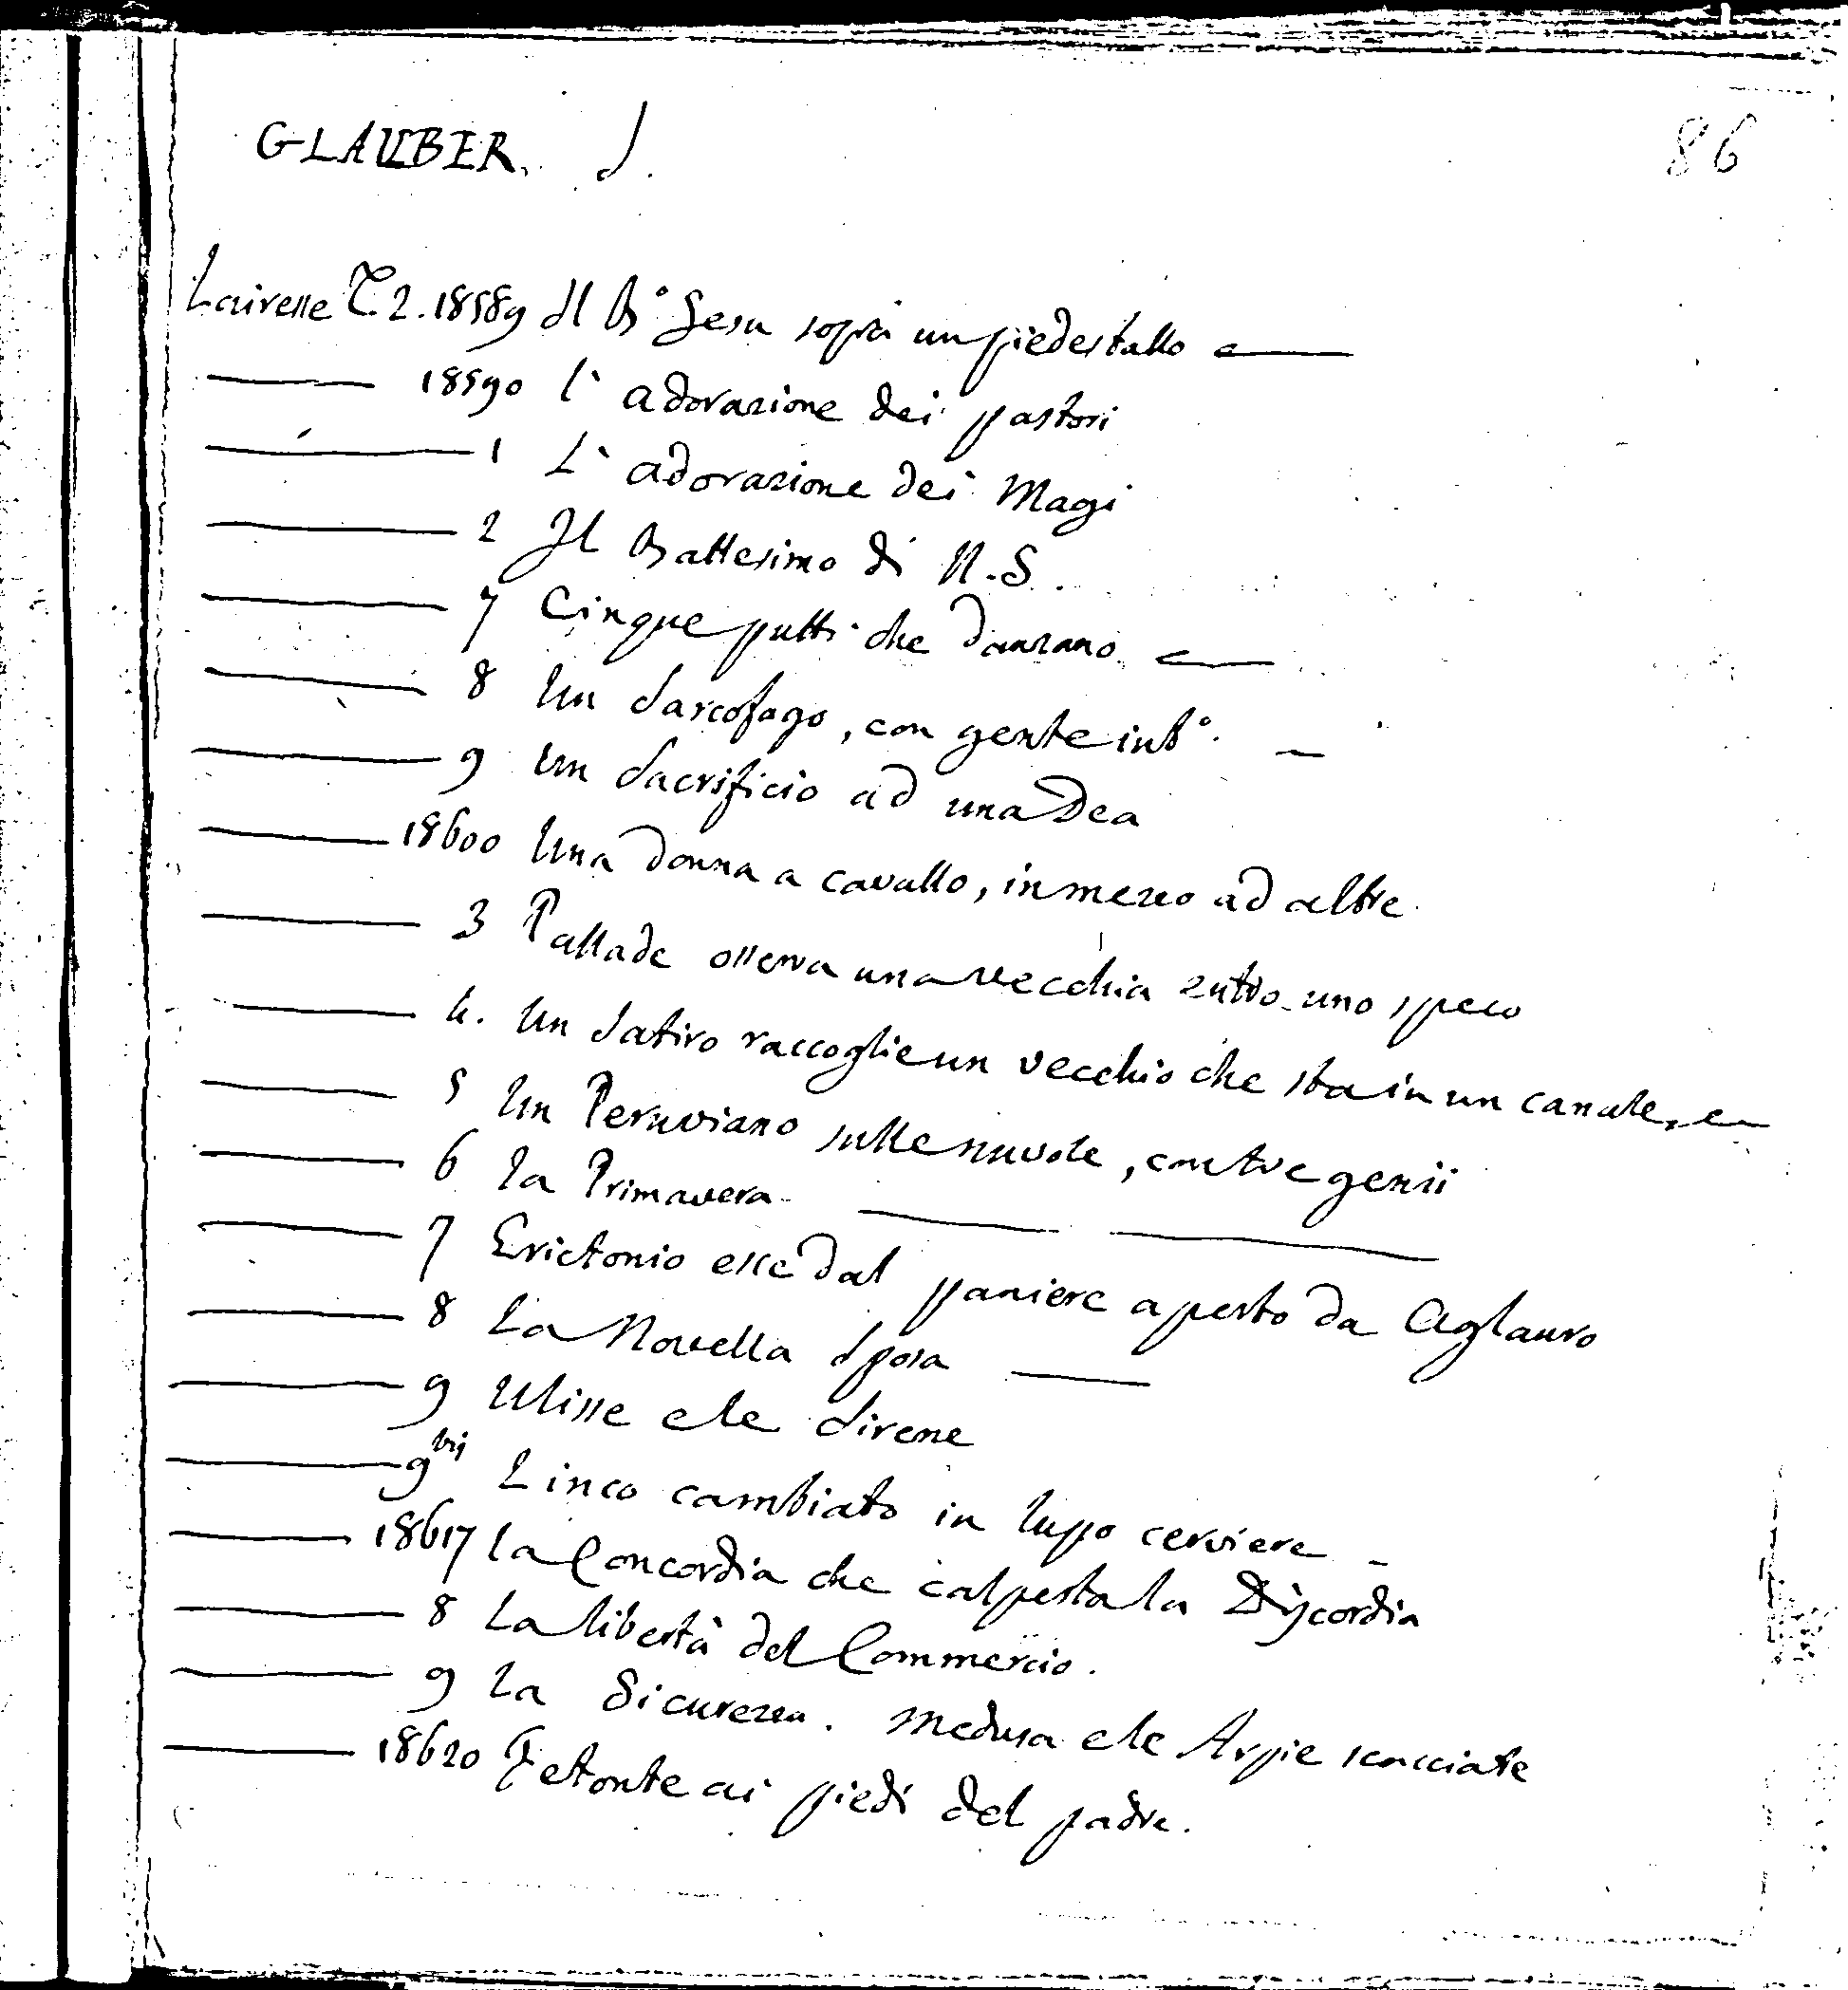 GLAUBER. J.
86
Lairesse T. 2. 18589 Il B.º Gesu sopra un piedestallo
18590 l' adorazione dei pastori
1 L' adorazione dei Magi
2 Il Battesimo di N. S.
7 Cinque putti che danzano
8 Un Sarcofago, con gente int.º
9 Un Sacrificio ad una Dea
18600 Una donna a cavallo, in mezzo ad altre
3 Pallade osserva una vecchia entro uno speco
4. Un Satiro raccoglie un vecchio che sta in un canale,
5 Un Peruviano sulle nuvole, con tre genii
6 La Primavera
7 Erictonio esce dal paniere aperto da Aglauro
8 La Novella Sposa
9 Ulisse e le Sirene
9 bis Linco cambiato in lupo cerviere
18617 la Concordia che calpesta la Discordia
8 La libertà del Commercio.
9 La Sicurezza. Medusa e le Arpie scacciate
18620 Fetonte ai piedi del padre.